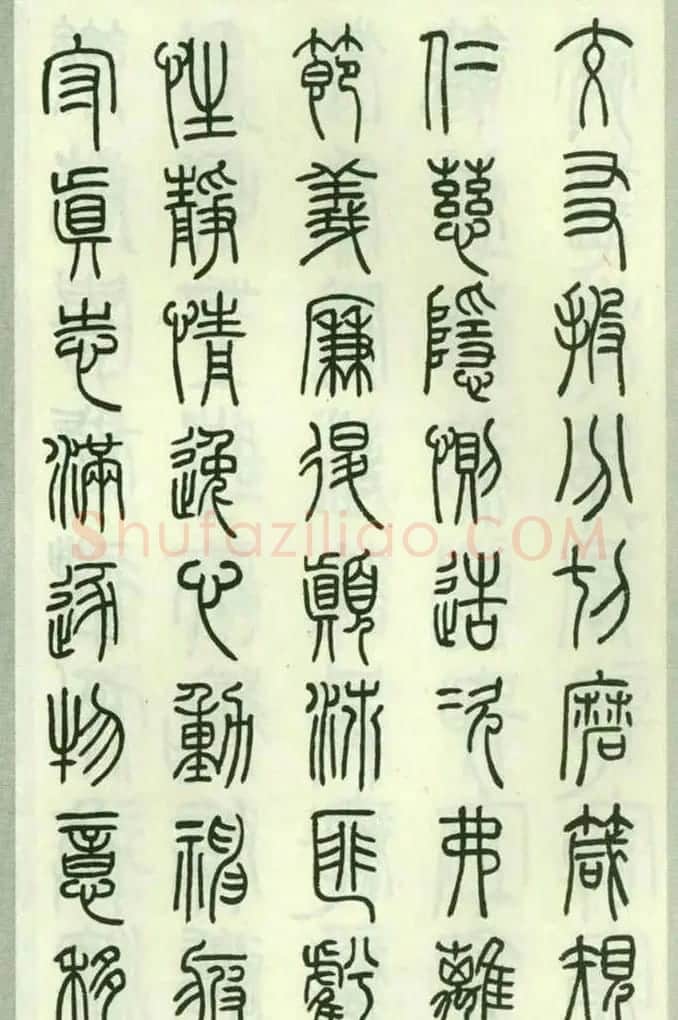 交友投分切磨箴規
仁慈隱惻造次弗離
節義廉退顛沛匪虧
性靜情逸心動神疲
守真志滿逐物意移
Shufaziliao.COM